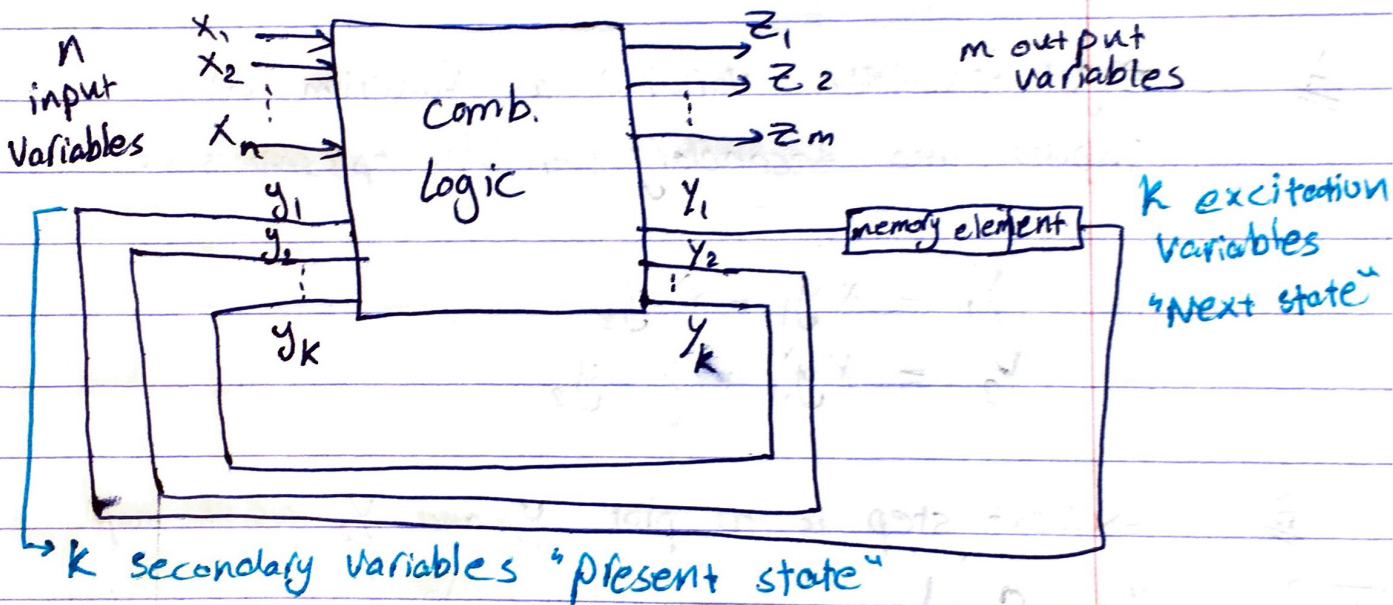 n
input
Variables
x1
x2
xn
comb.
logic
z1
z2
zm
m output
variables
y1
y2
yk
Y1
Y2
Yk
memory element
k excitation
variables
"Next state"
k secondary variables "present state"